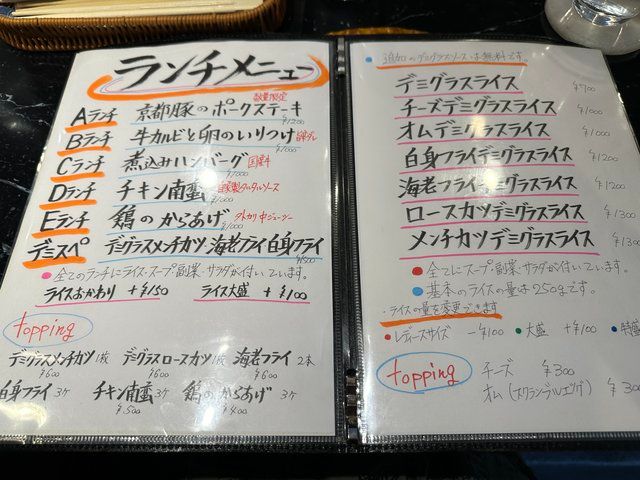 ランチメニュー
数量限定
Aランチ 京都豚のポークステーキ ¥1200
Bランチ 牛カルビと卵のいりつけ ¥1000
Cランチ 煮込みハンバーグ 国産牛 ¥1000
Dランチ チキン南蛮 自家製タルタルソース ¥1000
Eランチ 鶏のからあげ 外カリ中ジューシー ¥1000
デミスペ デミグラスメンチカツ、海老フライ白身フライ ¥1500
●全てのランチにライス、スープ、副菜、サラダが付いています。
ライスおかわり +¥150 ライス大盛 +¥100
topping
デミグラスメンチカツ1枚 デミグラスロースカツ1枚 海老フライ 2本
¥600 ¥600 ¥600
白身フライ 3ケ チキン南蛮 3ケ 鶏のからあげ 3ケ
¥500 ¥400
・追加のデミグラスソースは無料です。
デミグラスライス ¥900
チーズデミグラスライス ¥1000
オムデミグラスライス ¥1000
白身フライデミグラスライス ¥1200
海老フライデミグラスライス ¥1200
ロースカツデミグラスライス ¥1300
メンチカツデミグラスライス ¥1300
●全てにスープ、副菜、サラダが付いています。
●基本のライスの量は250gです。
・ライスの量を変更できます
●レディースサイズ -¥100 ●大盛 +¥100 ●特盛
topping
チーズ ¥300
オム(スクランブルエッグ) ¥300